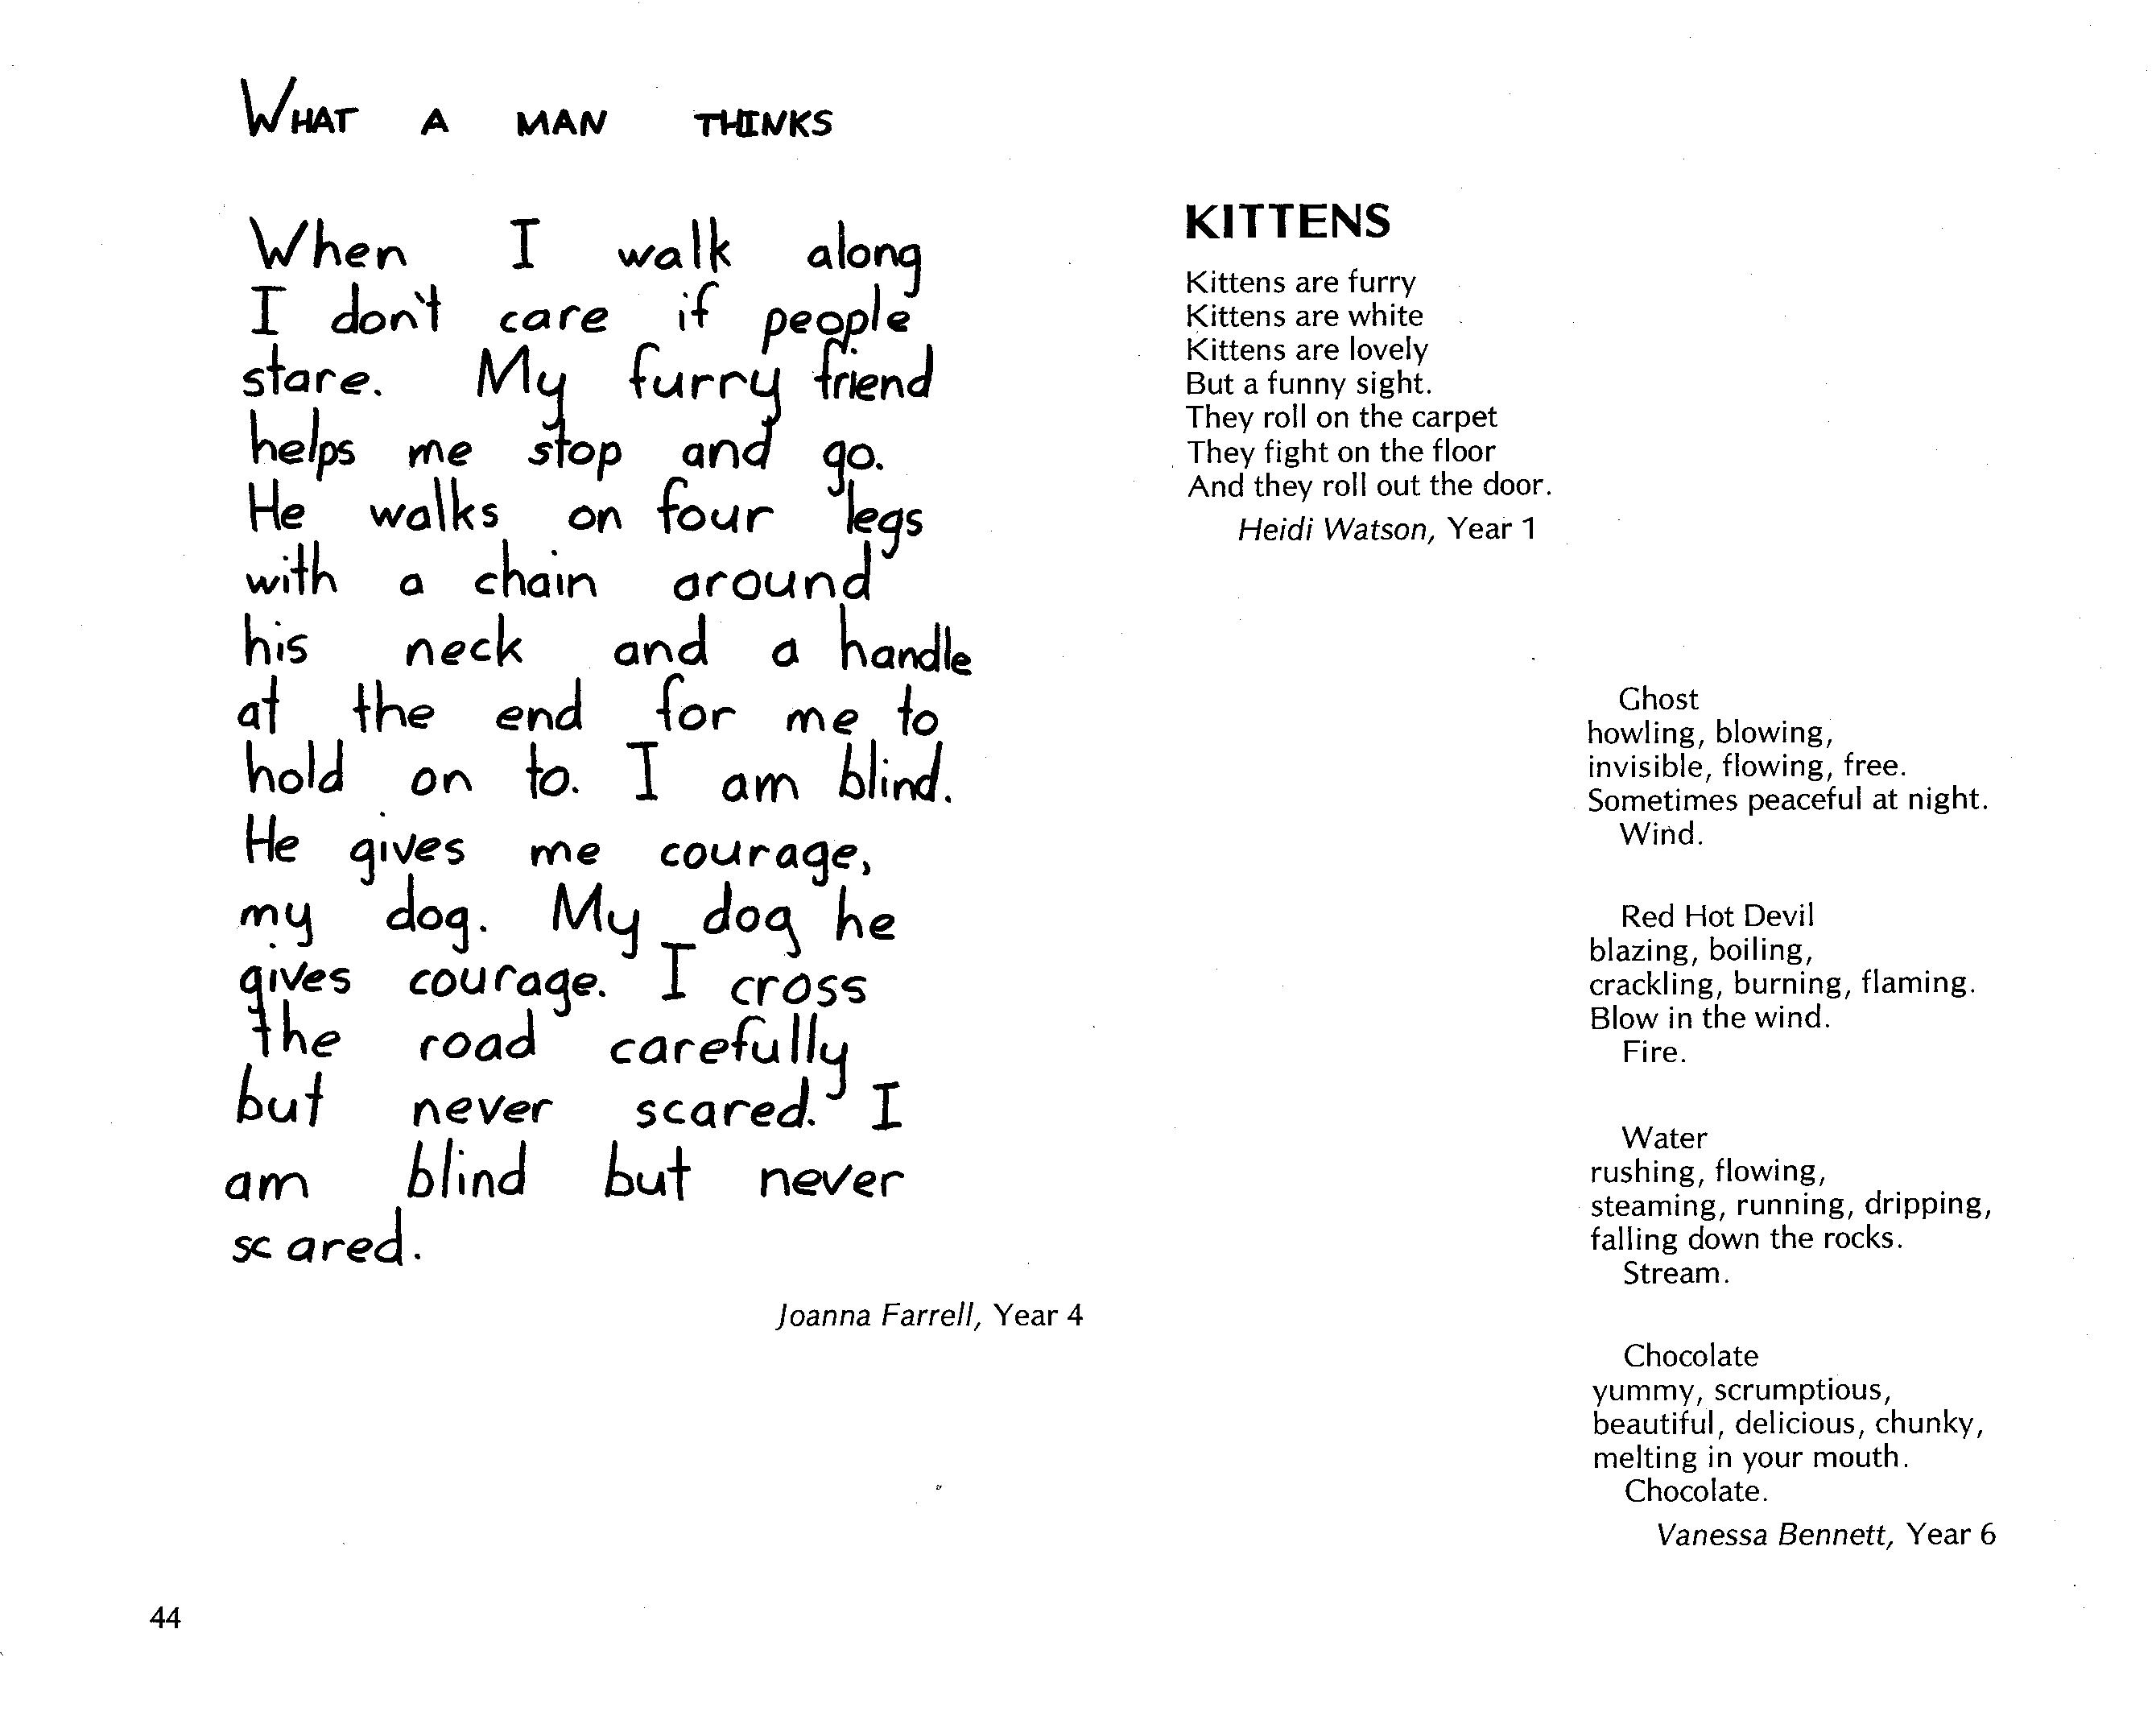 WHAT A MAN THINKS
When I walk along
I don't care if people
stare. My furry friend
helps me stop and go.
He walks on four legs
with a chain around
his neck and a handle
at the end for me to
hold on to. I am blind.
He gives me courage,
my dog. My dog he
gives courage. I cross
the road carefully
but never scared. I
am blind but never
scared.
Joanna Farrell, Year 4
KITTENS
Kittens are furry
Kittens are white
Kittens are lovely
But a funny sight.
They roll on the carpet
They fight on the floor
And they roll out the door.
Heidi Watson, Year 1
Ghost
howling, blowing,
invisible, flowing, free.
Sometimes peaceful at night.
Wind.
Red Hot Devil
blazing, boiling,
crackling, burning, flaming.
Blow in the wind.
Fire.
Water
rushing, flowing,
steaming, running, dripping,
falling down the rocks.
Stream.
Chocolate
yummy, scrumptious,
beautiful, delicious, chunky,
melting in your mouth.
Chocolate.
Vanessa Bennett, Year 6
44